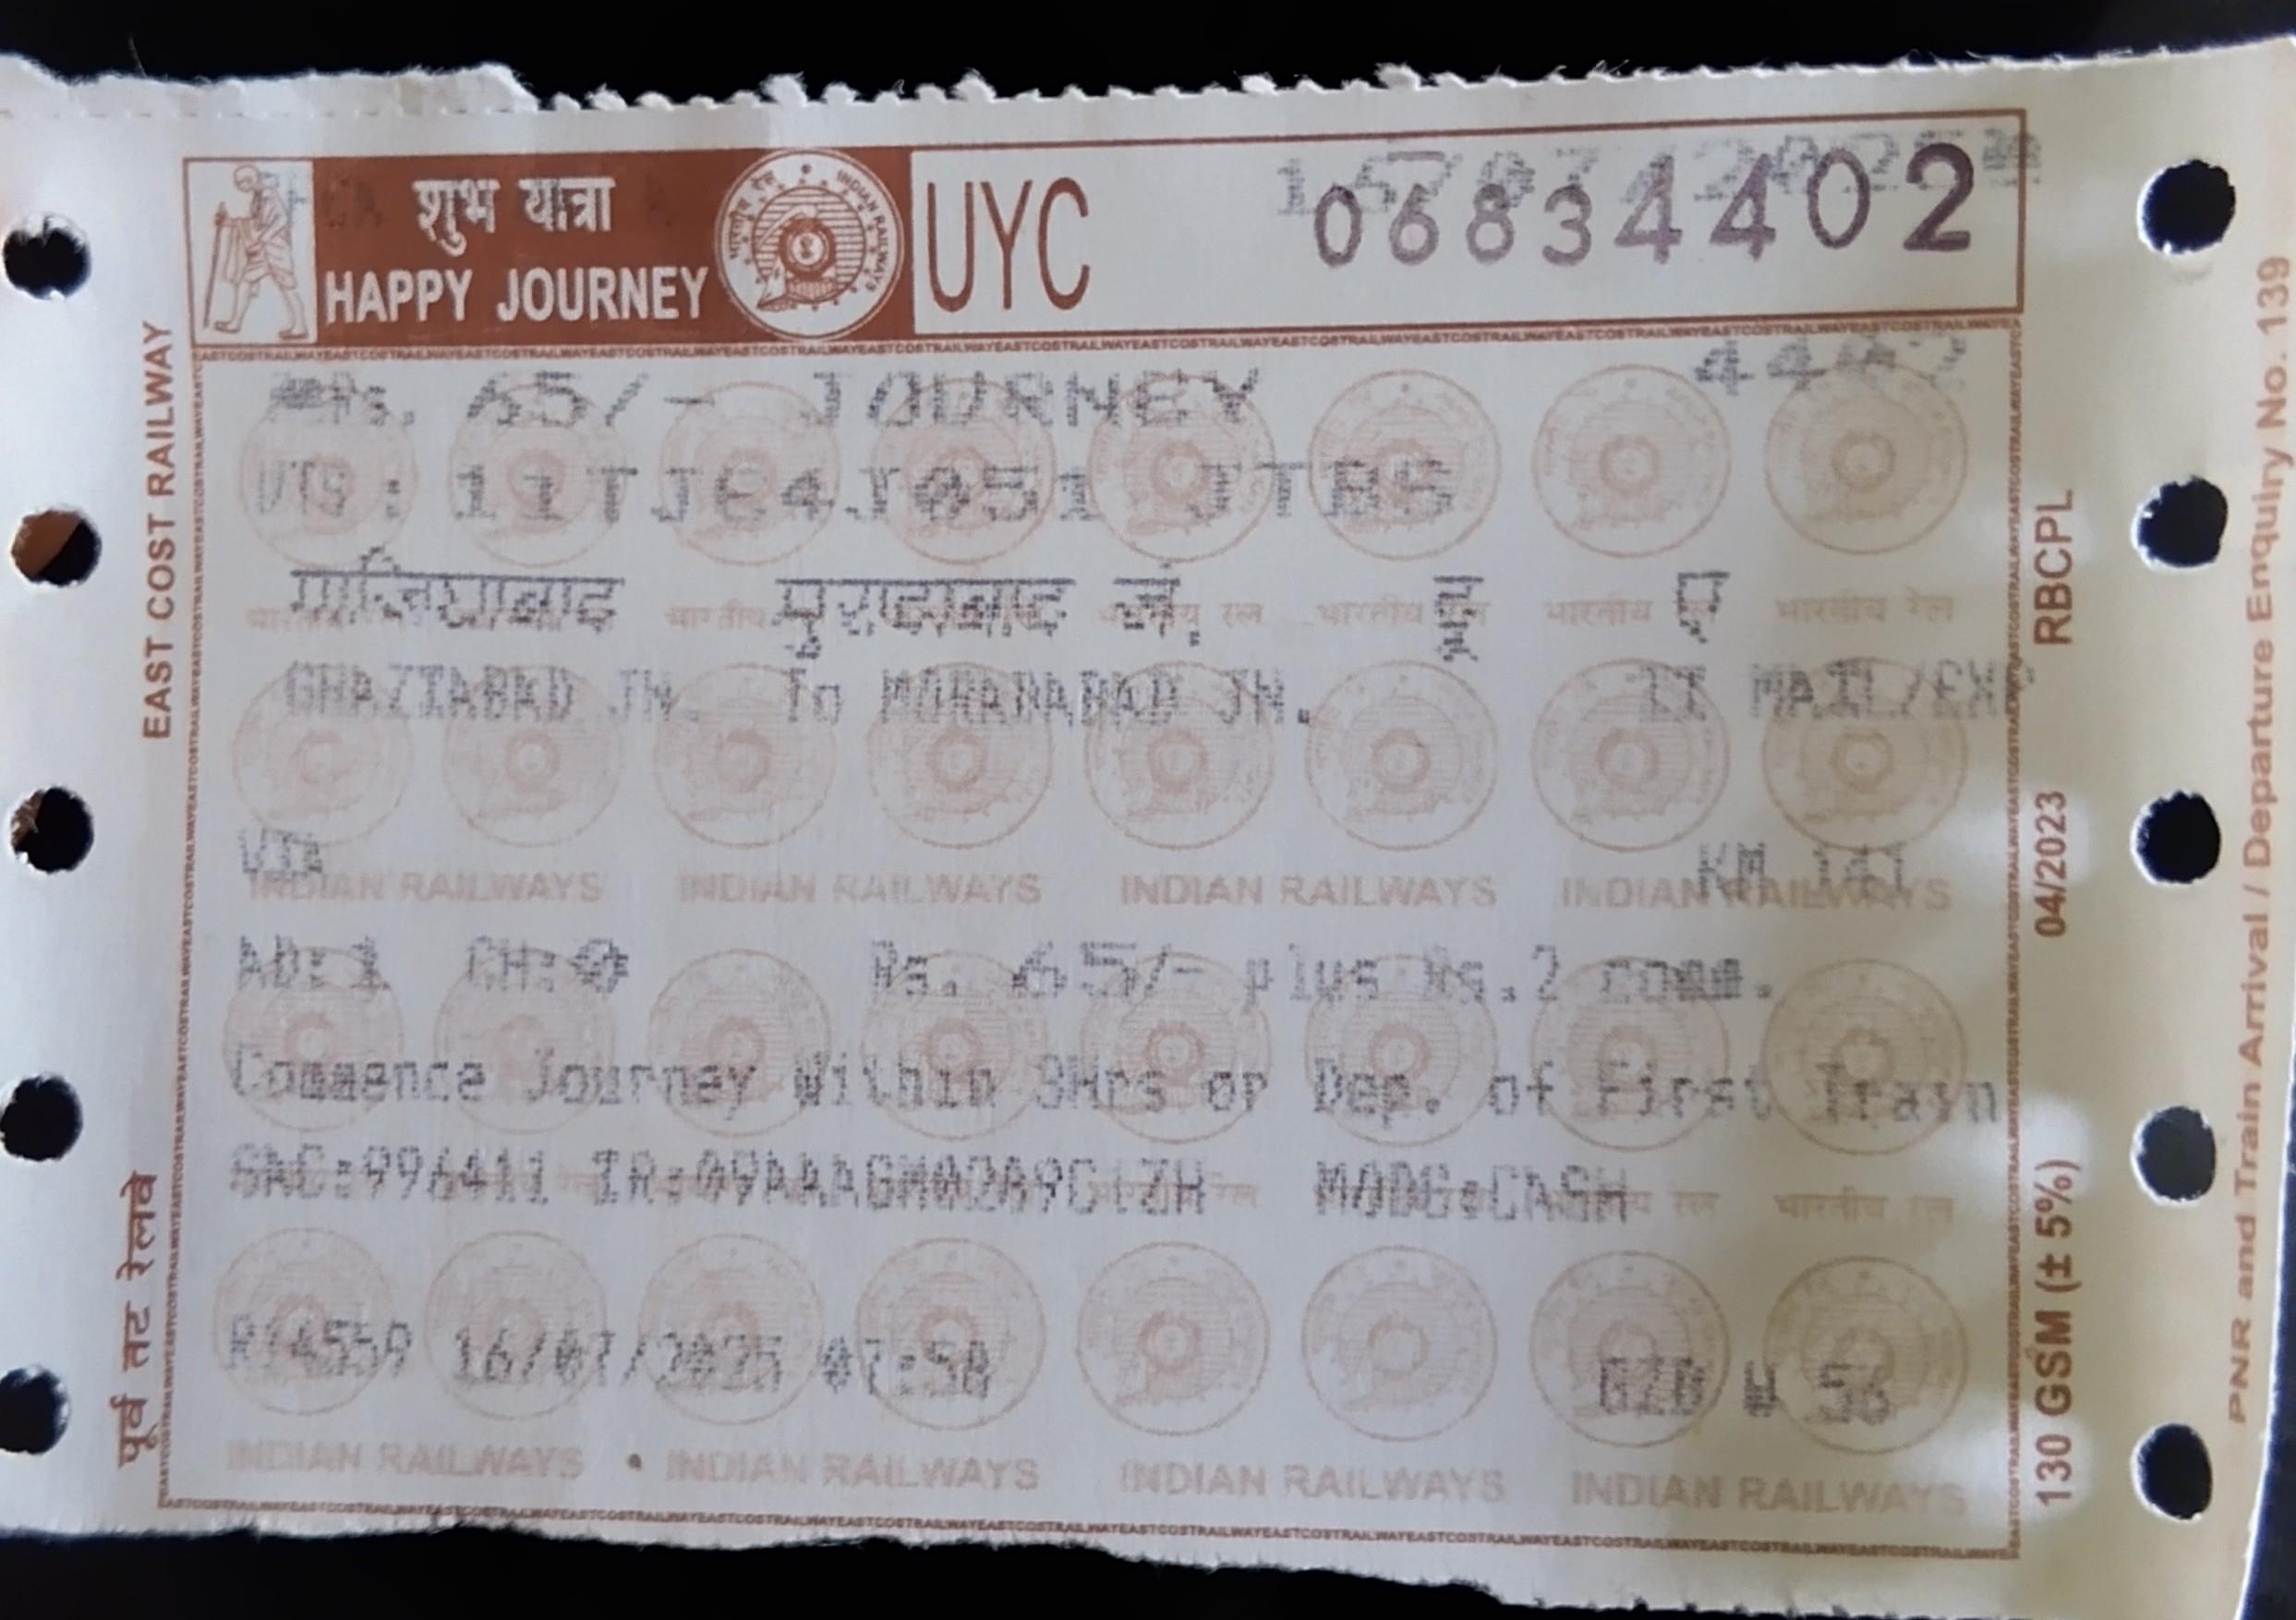 शुभ यात्रा
HAPPY JOURNEY
UYC
06834402
Rs. 65/- JOURNEY
4402
UTS : JTBS
गाजियाबाद मुरादाबाद जं.
GHAZIABAD JN. To MORADABAD JN. II MAIL/EXP
VIA KM 141
AD:1 CH:0 Rs. 65/- plus Rs.2 comm.
Commence Journey Within 3Hrs or Dep. of First Train
SAC:996411 MODE:CASH
16/07/2025 07:50
GZB W 56
EAST COST RAILWAY
पूर्व तट रेलवे
RBCPL
04/2023
130 GSM (± 5%)
PNR and Train Arrival / Departure Enquiry No. 139
भारतीय रेल
INDIAN RAILWAYS INDIAN RAILWAYS INDIAN RAILWAYS INDIAN RAILWAYS
INDIAN RAILWAYS INDIAN RAILWAYS INDIAN RAILWAYS INDIAN RAILWAYS